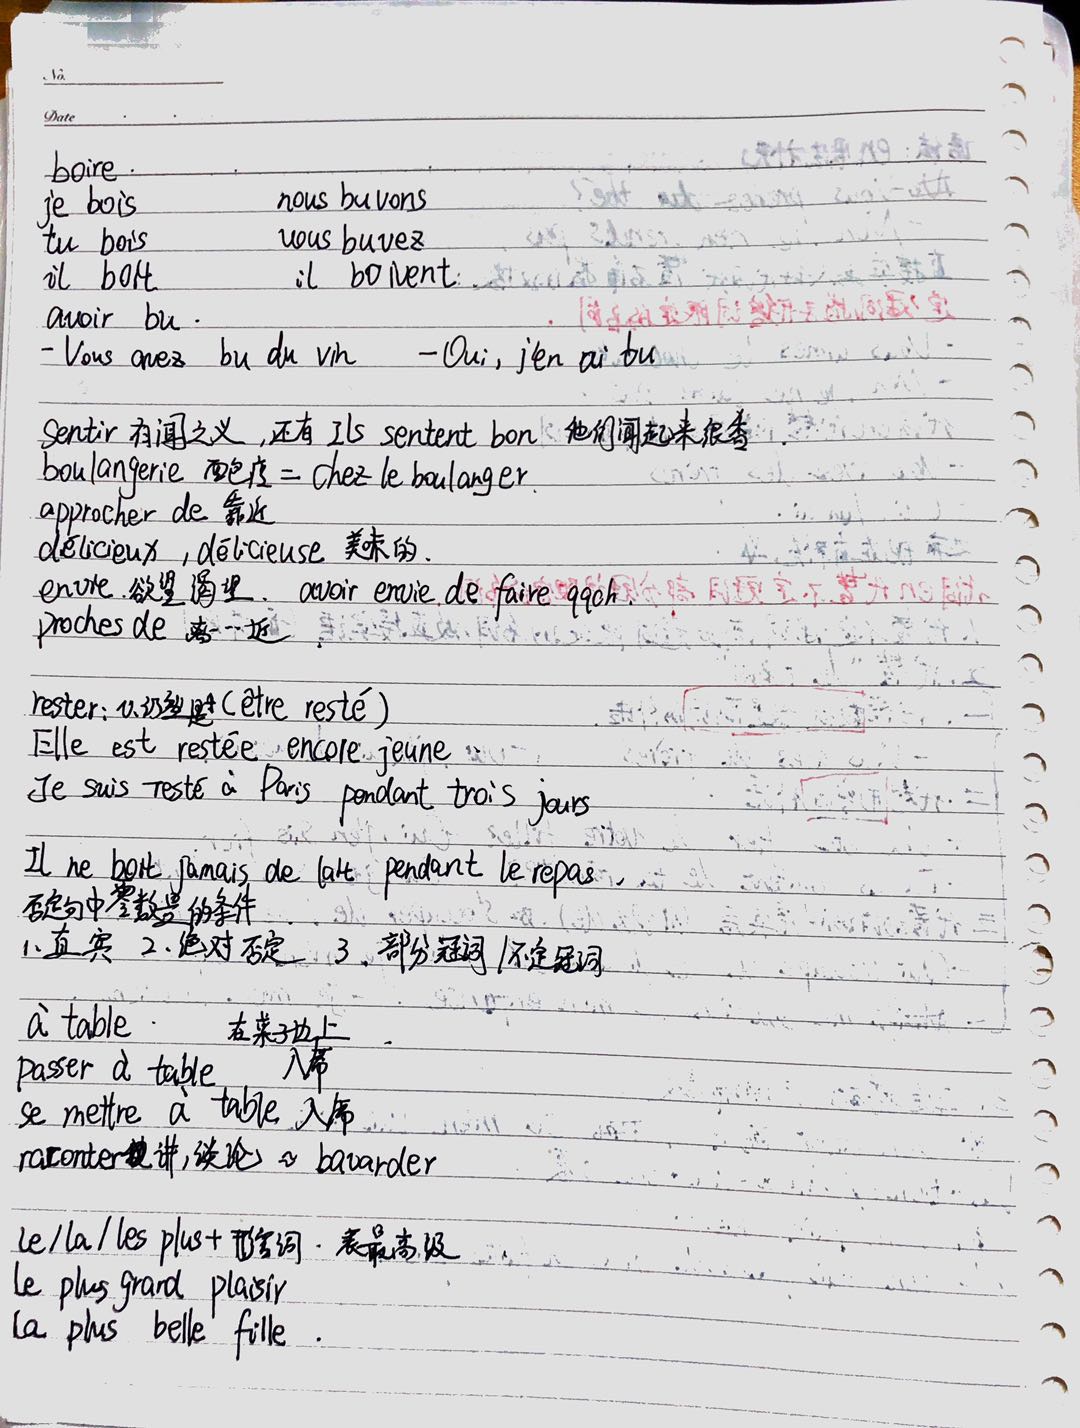 No.
Date
boire
je bois nous buvons
tu bois vous buvez
il boit il boivent
avoir bu.
- Vous avez bu du vin - Oui, j'en ai bu
sentir 有闻之义, 还有 Ils sentent bon 他们闻起来很香.
boulangerie 面包店 = chez le boulanger.
approcher de 靠近
délicieux, délicieuse 美味的.
envie 欲望 渴望. avoir envie de faire qqch.
proches de 离……近
rester: v.仍然是 (être resté)
Elle est restée encore jeune
Je suis resté à Paris pendant trois jours
Il ne boit jamais de lait pendant le repas.
否定句中零数量的条件
1、直宾 2、绝对否定 3、部分冠词/不定冠词
à table 在桌子边上.
passer à table 入席
se mettre à table 入席
raconter 讲, 谈论 ≈ bavarder
le/la/les plus + 形容词. 表最高级
le plus grand plaisir
la plus belle fille.